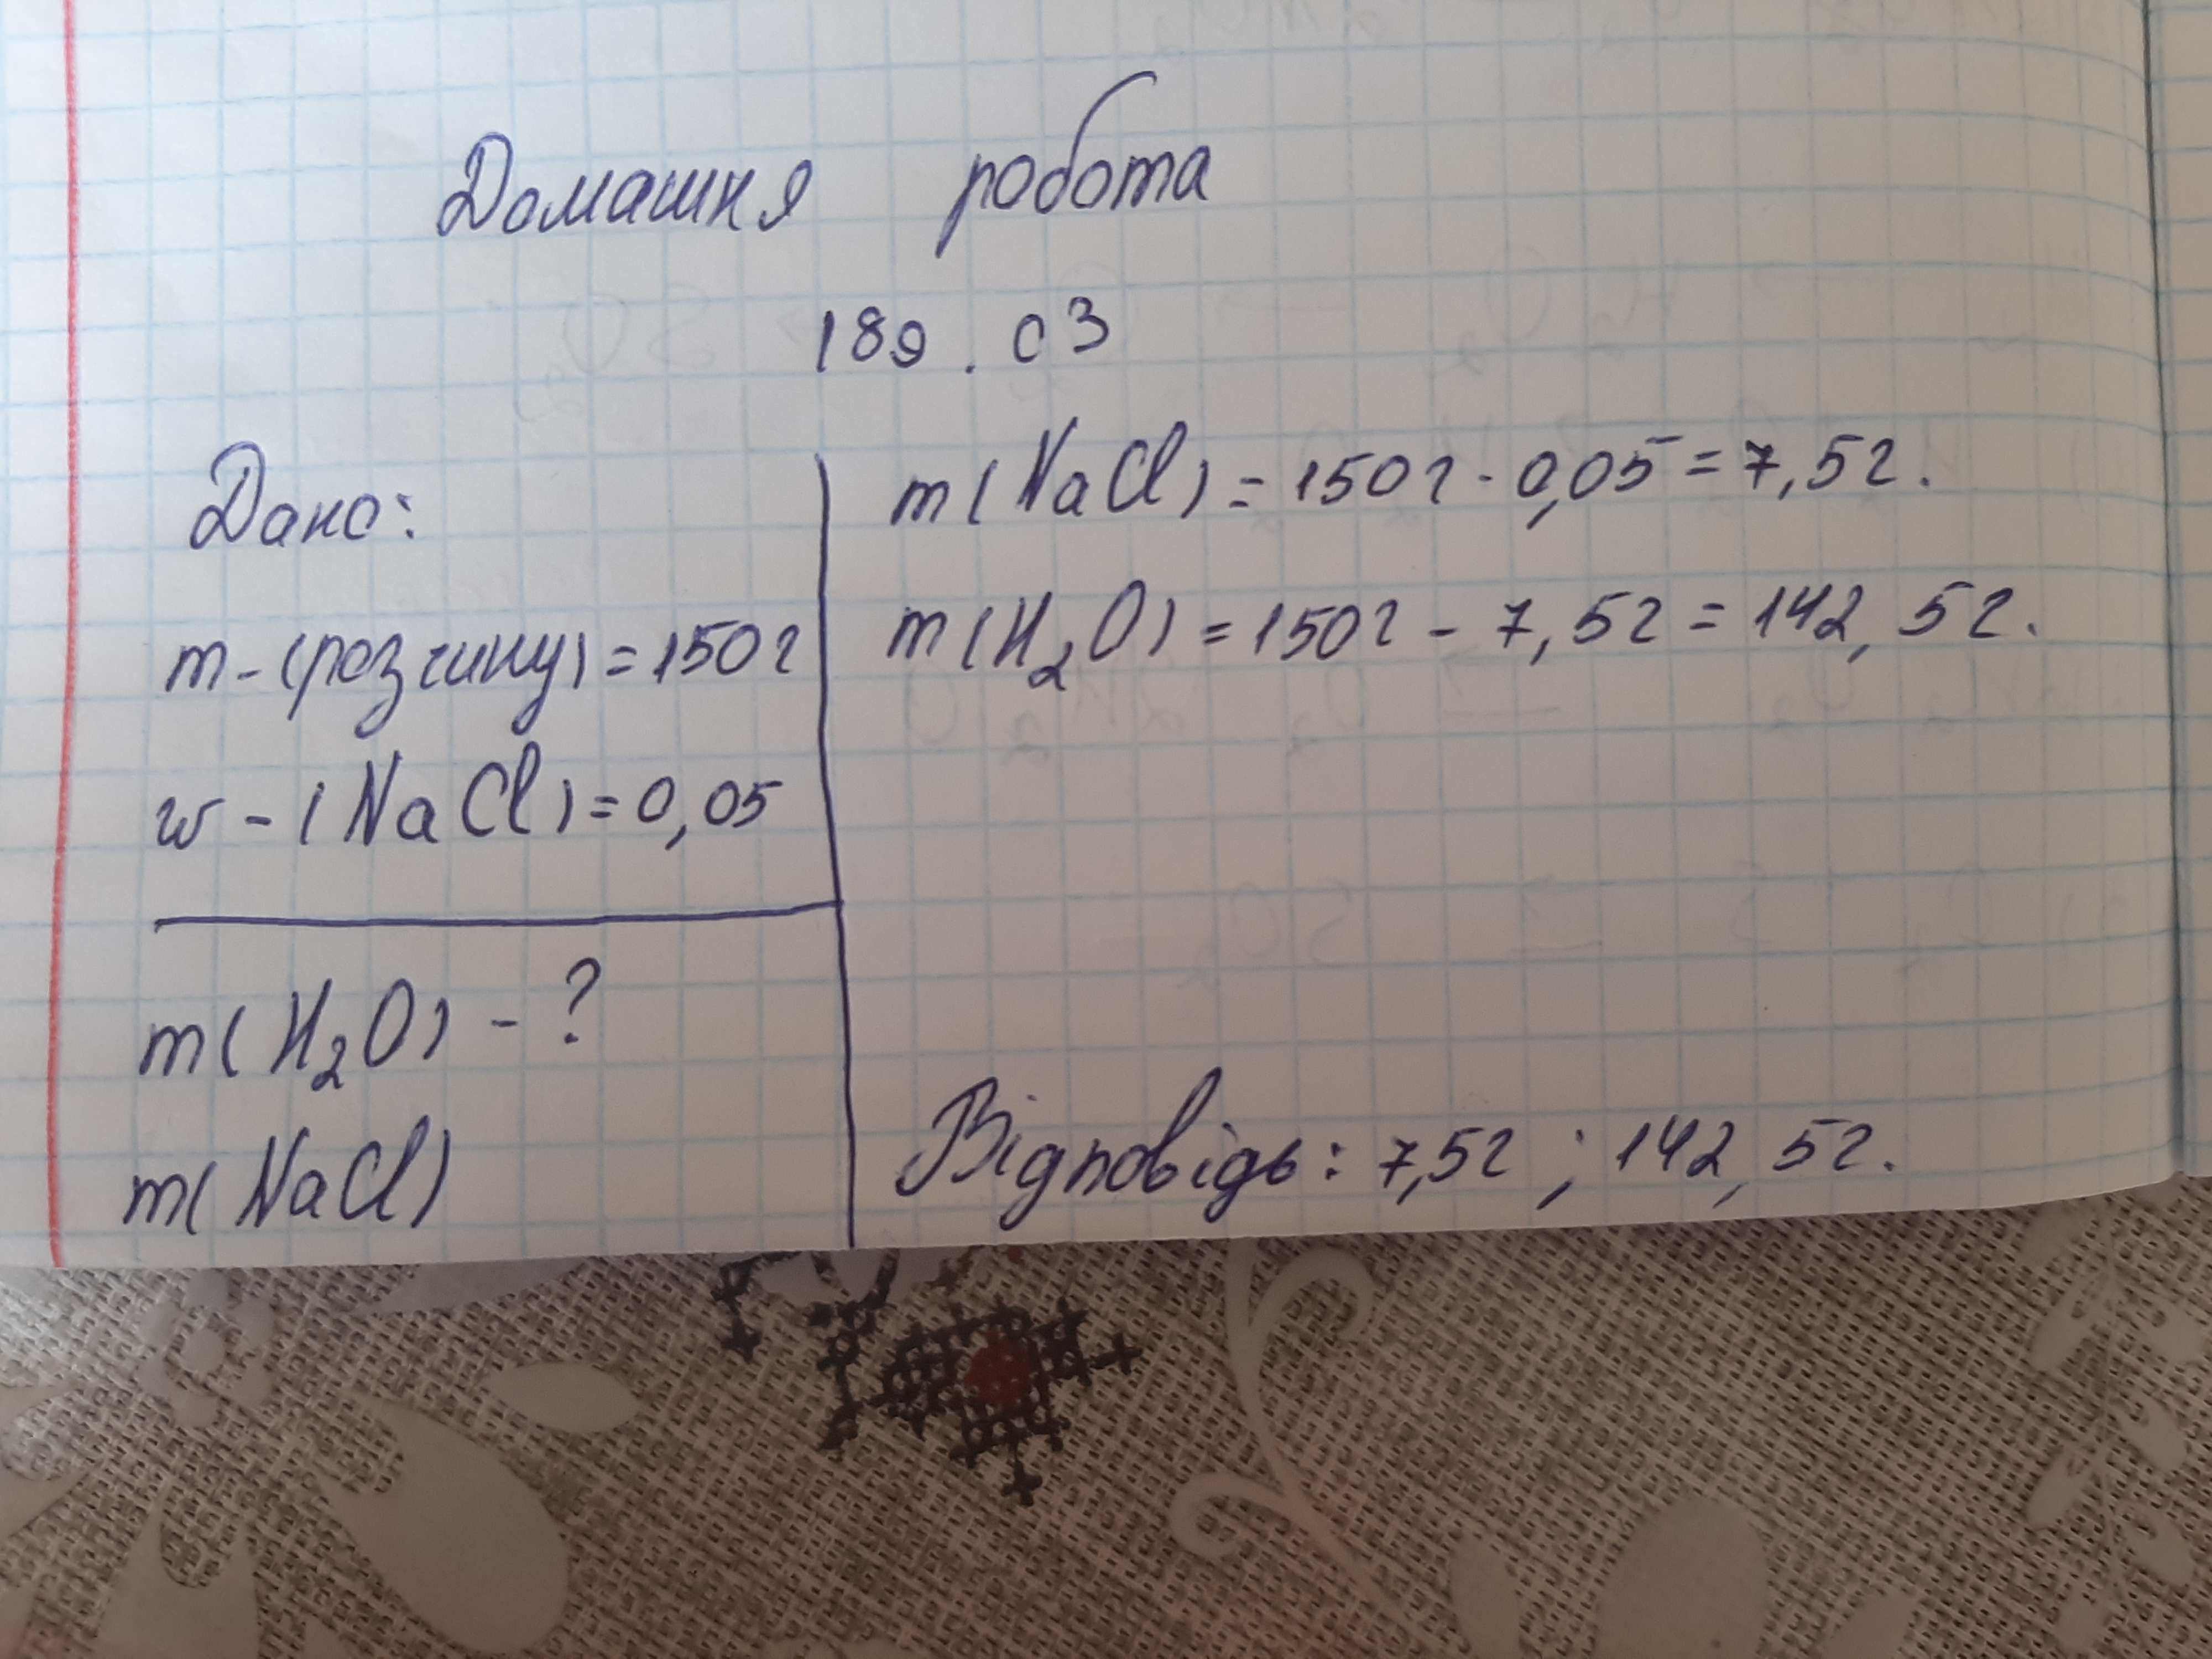 Домашня робота
189.03
Дано:
m-(розчину)=150г
w-(NaCl)=0,05
m(H₂O) - ?
m(NaCl)
m(NaCl)=150г·0,05=7,5г.
m(H₂O)=150г-7,5г=142,5г.
Відповідь: 7,5г; 142,5г.